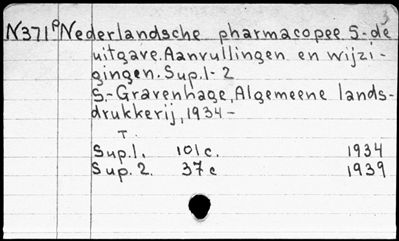 3
N371ᵃ Nederlandsche pharmacopee 5-de
uitgave. Aanvullingen en wijzi-
gingen. Sup. 1-2
S.-Gravenhage, Algemeene lands-
drukkerij, 1934-
T.
Sup. 1. 101 c. 1934
Sup. 2. 37 c 1939